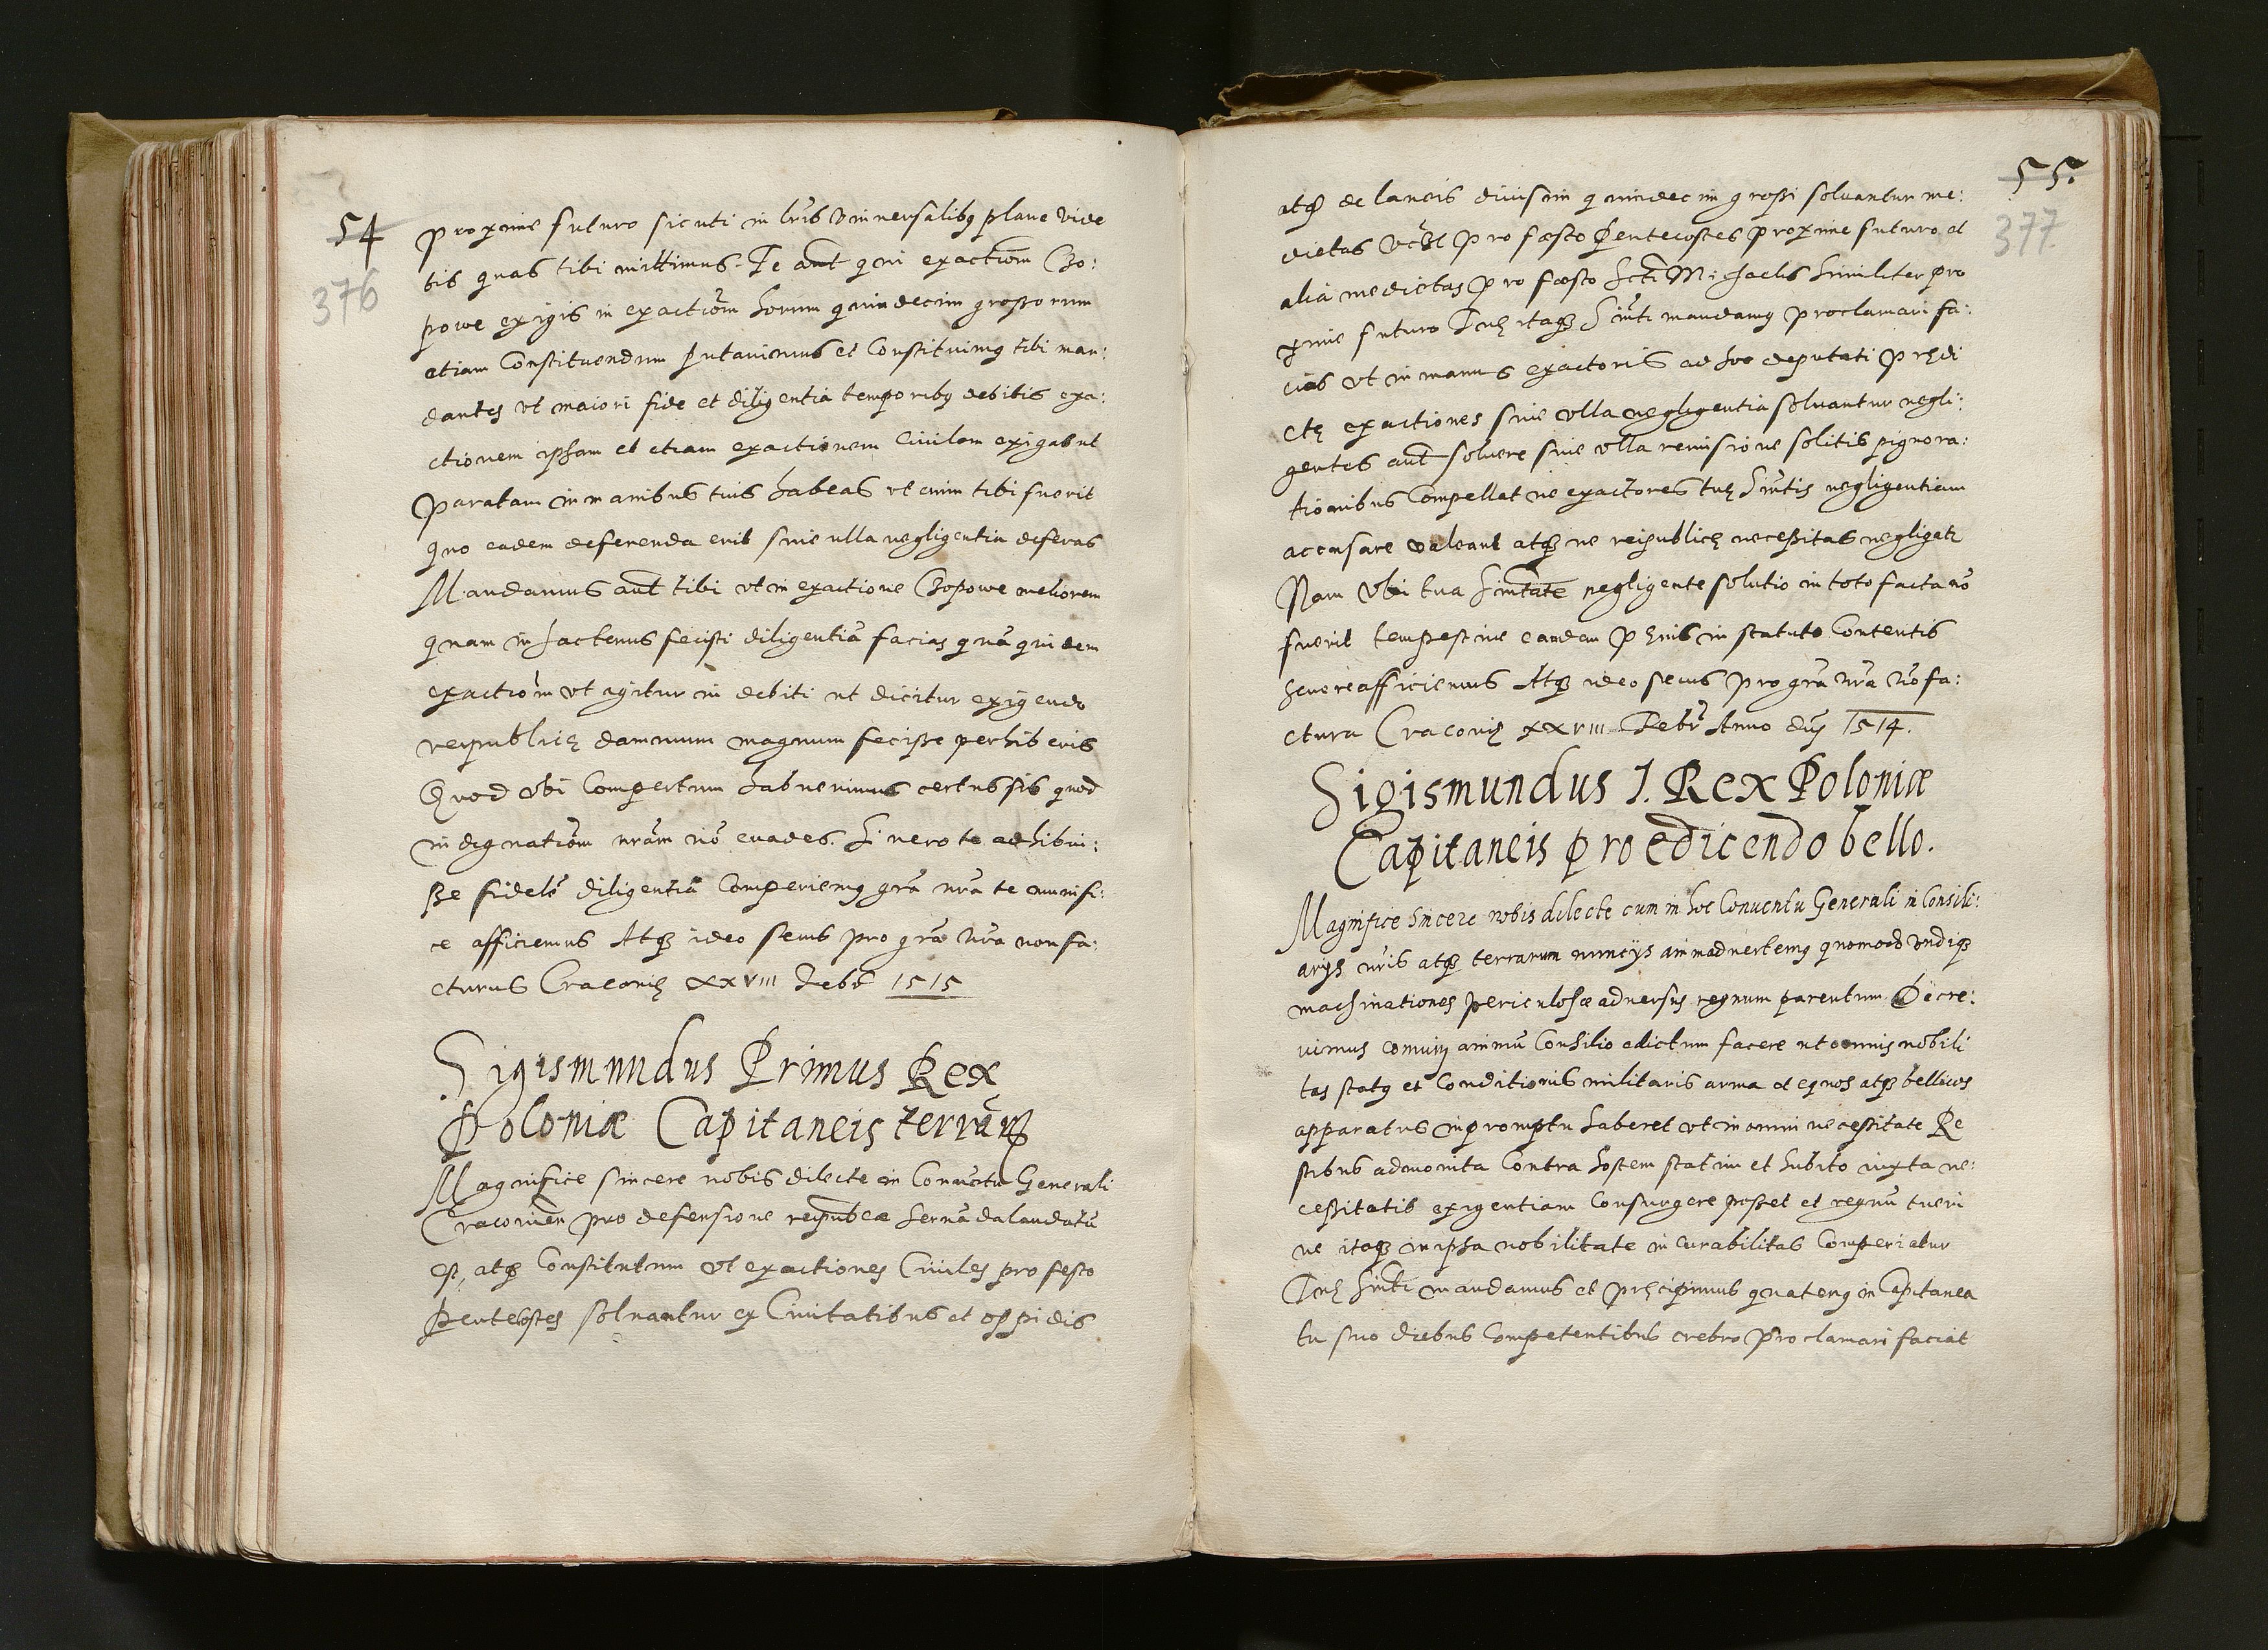 54
376
proxime futuro sicuti in lr̃is Vniuersalibꝫ plane vide
tis quas tibi mittimus. Te aut̃ qui exactiom̃ Czo:
powe exigis in exactiom̃ horum quindecim grossorum
etiam Constituendum putauimus et Constituimꝰ tibi man:
dantes vt maiori fide et diligentia temporibꝫ debitis exa:
ctionem ipsam et etiam exactionem Ciuilem exigas vt
paratam in manibus tuis habeas vt cum tibi fuerit
quo eadem deferenda erit sine ulla negligentia deferas
Mandamus aut̃ tibi vt in exactione Czopowe meliorem
quam in hactenus fecisti diligentiã facias quã quidem
exactiom̃ vt igitur in debiti ut dicitur exigendo
reipublicę damnum magnum fecisse perhiberis
Quod vbi Compertum habuerimus certus sis quod
indignatiom̃ nrãm nõ euades. Si uero te adhibui:
sse fidelẽ diligentiã Comperiemꝰ grã nrã te munifi:
ce afficiemus Atqꝫ ideo secus pro grã nrã non fa:
cturus Cracouię XXVIII Febr̃ 1515
Sigismundus Primus Rex
Poloniæ Capitaneis terrarꝝ
Magnifice sincere nobis dilecte in Conuentu Generali
Cracouien̄ pro defensione reipub̃cæ seruãda laudatũ
est, atqꝫ Constitutum vt exactiones Ciuiles pro festo
Pentecostes soluantur ex Ciuitatibus et oppidis
55.
377
atqꝫ de laneis diuisim quindecim grossi soluantur me:
dietas vc̃ꝫt pro fæsto Pentecostes proxime futuro et
alia medietas pro fæsto Scti Michaelis similiter pro
xime futuro Tuę itaqꝫ Sint̃i mandamꝰ proclamari fa:
cias vt in manus exactoris ad hoc deputati prędi
ctę exactiones sine vlla negligentia soluantur negli:
gentes aut̃ soluere sine vlla remissione solitis pignora:
tionibus Compellat ne exactores tuę Sint̃is negligentiam
accusare valeant atqꝫ ne reipublicę necessitas negligatꝛ
Nam vbi tua Sint̃ate negligente solutio in toto facta nõ
fuerit tempestiue eandem pęnis in statuto Contentis
seuere afficiemus Atqꝫ ideo secus pro grã nrã nõ fa:
ctura Cracouię XXVIII Febr̃ Anno dnĩ 1514.
Sigismundus I. Rex Poloniæ
Capitaneis pro edicendo bello.
Magnifice sincere nobis dilecte cum in hoc Conuentu Generali in Consili:
arijs nr̃is atqꝫ terrarum nuncijs animaduertemꝰ quomodo vndiqꝫ
machinationes periculosæ aduersus regnum parentur Decre:
uimus comuni animũ Consilio edictum facere ut omnis nobili
tas statꝰ et Conditionis militaris arma et equos atqꝫ bellicos
apparatus inpromptu haberet vt in omni necessitate Re
stibus admonita Contra hostem statim et subito iuxta ne:
cessitatis exigentiam Consurgere posset et regnũ tueri
ne itaqꝫ in ipsa nobilitate incurabilitas Comperiatur
Tuę Sint̃i mandamus et pręcipimus quatenꝰ in Capitanea
tu suo diebus Competentibus crebro proclamari faciat